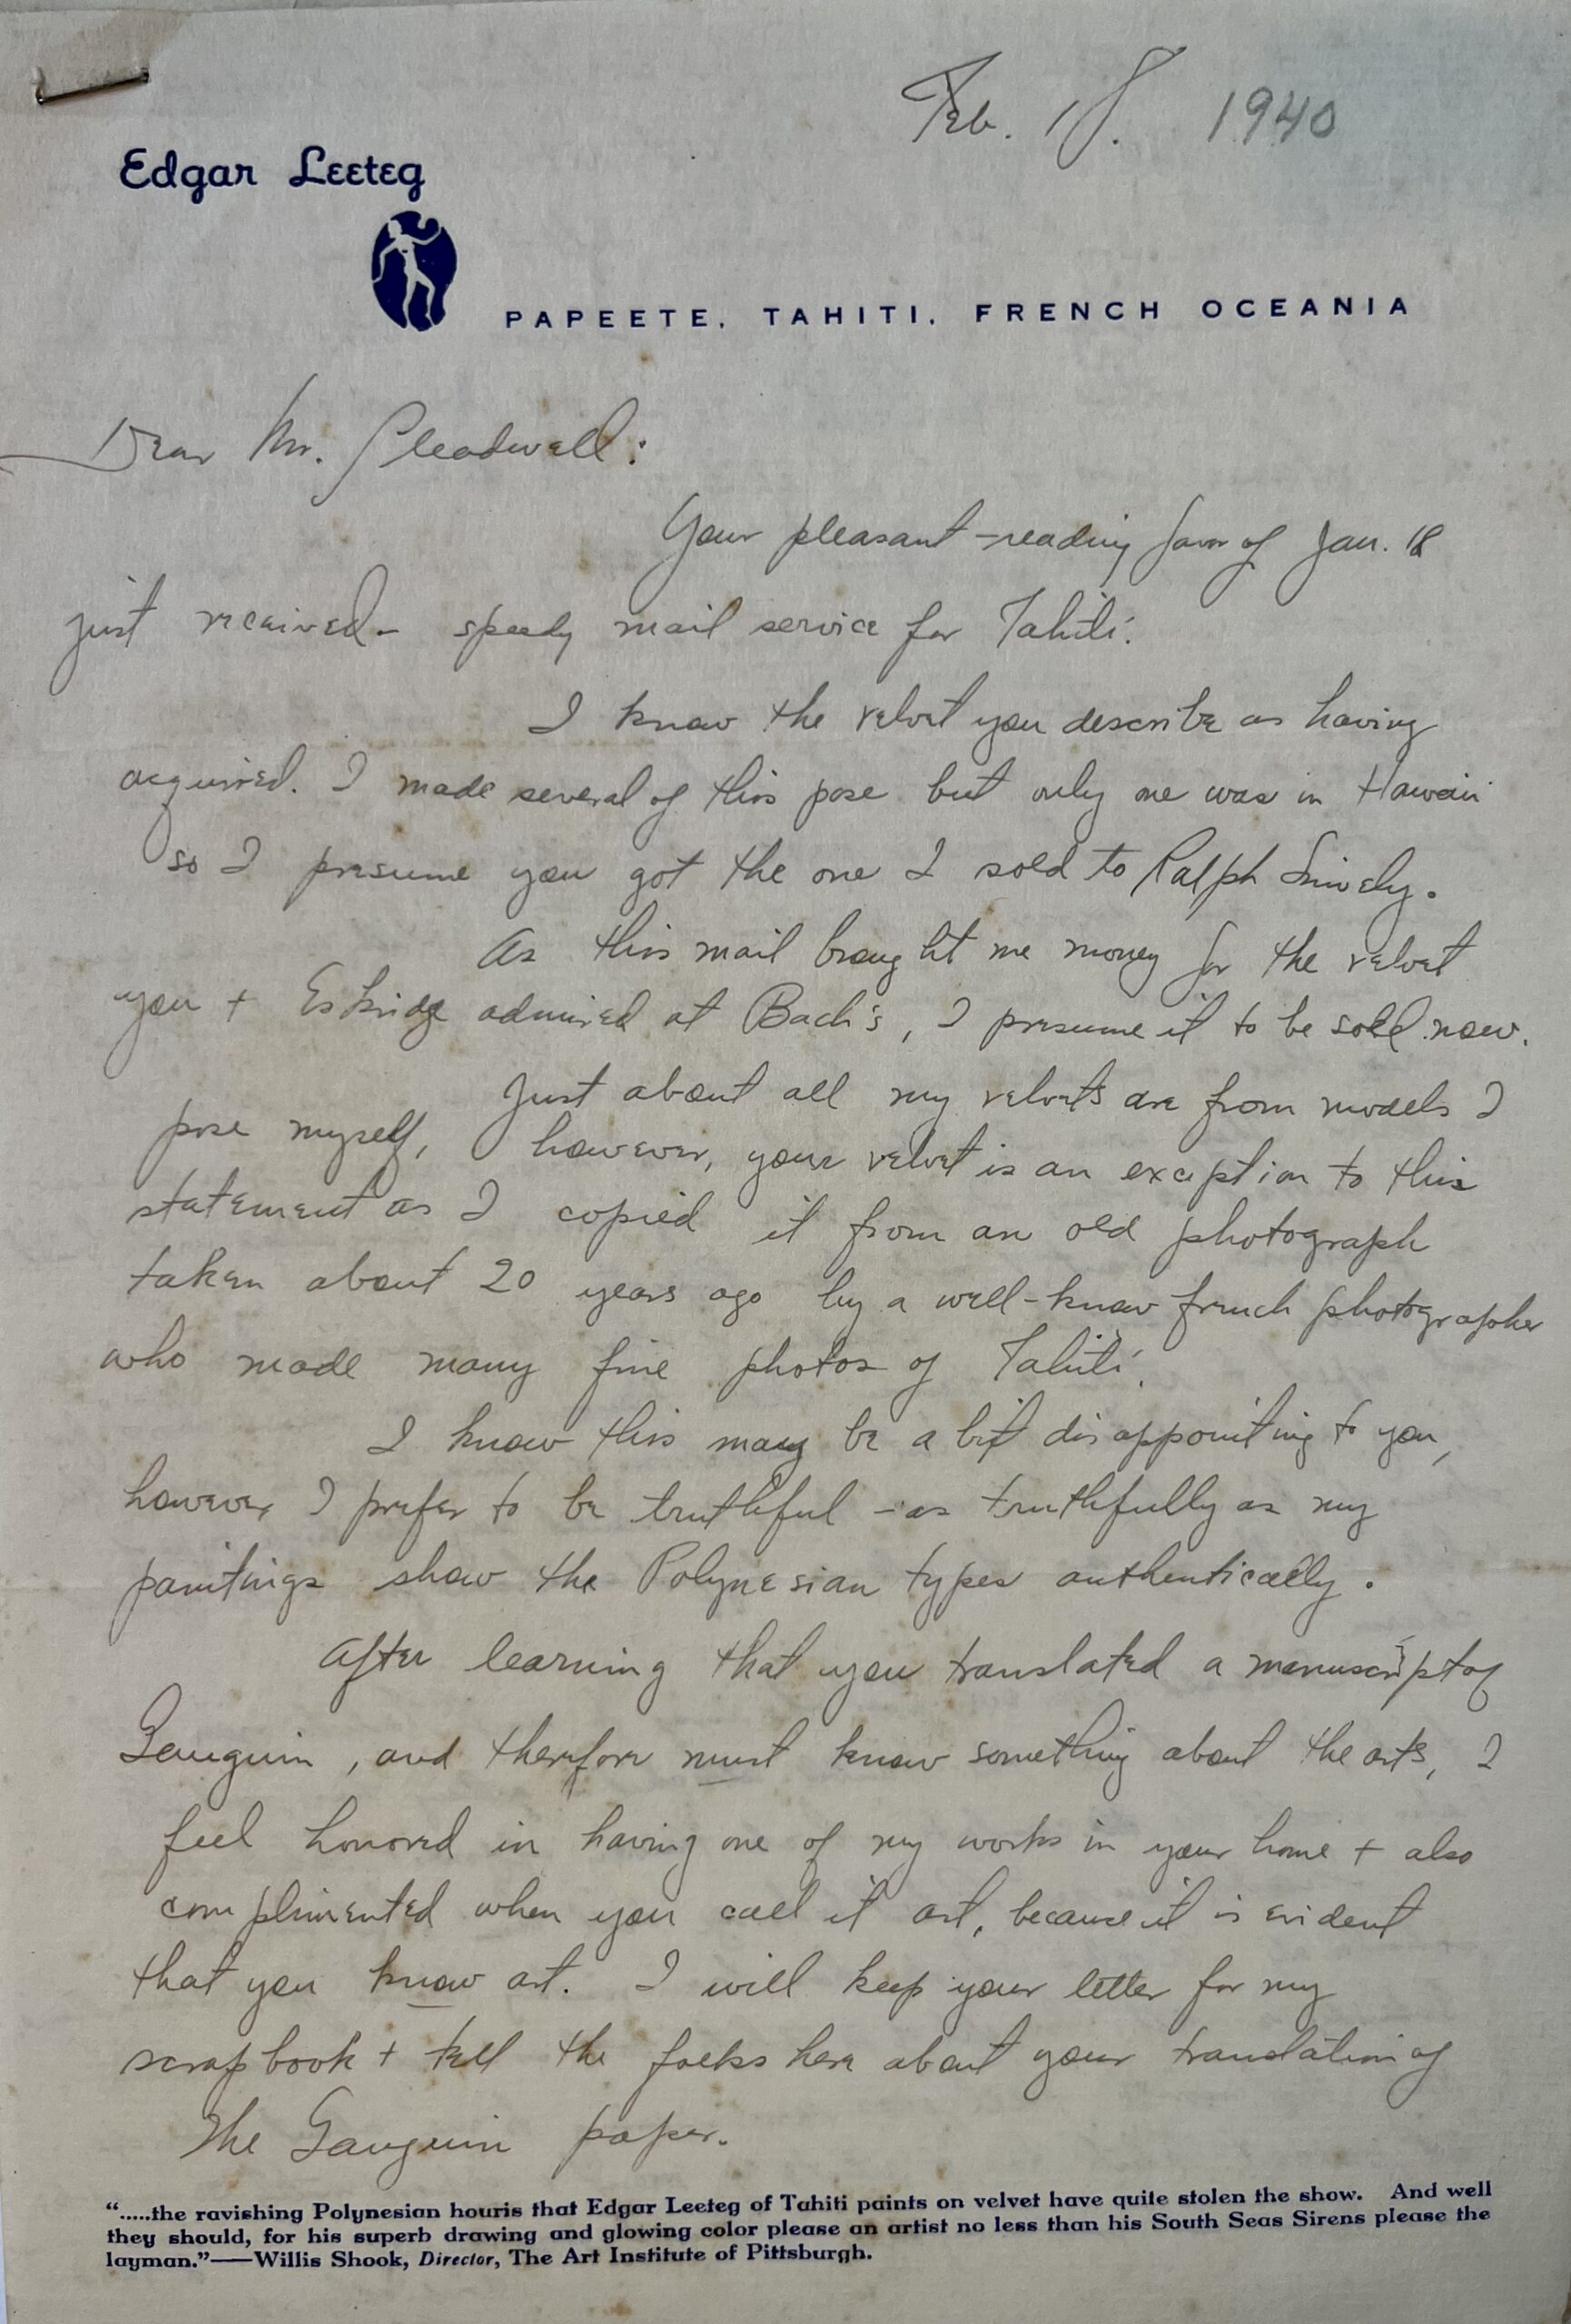 Feb. 18. 1940
Edgar Leeteg
PAPEETE, TAHITI, FRENCH OCEANIA
Dear Mr. Pleadwell:
Your pleasant-reading favor of Jan. 18
just received - speedy mail service for Tahiti.
I know the velvet you describe as having
acquired. I made several of this pose but only one was in Hawaii
so I presume you got the one I sold to Ralph Snively.
As this mail brought me money for the velvet
you + Eskridge admired at Bach's, I presume it to be sold now.
Just about all my velvets are from models I
pose myself, however, your velvet is an exception to this
statement as I copied it from an old photograph
taken about 20 years ago by a well-know french photographer
who made many fine photos of Tahiti.
I know this may be a bit disappointing to you,
however I prefer to be truthful - as truthfully as my
paintings show the Polynesian types authentically.
After learning that you translated a manuscript of
Gauguin, and therefore must know something about the arts, I
feel honored in having one of my works in your home + also
complimented when you call it art, because it is evident
that you know art. I will keep your letter for my
scrapbook + tell the folks here about your translation of
the Gauguin paper.
“.....the ravishing Polynesian houris that Edgar Leeteg of Tahiti paints on velvet have quite stolen the show. And well
they should, for his superb drawing and glowing color please an artist no less than his South Seas Sirens please the
layman.”——Willis Shook, Director, The Art Institute of Pittsburgh.